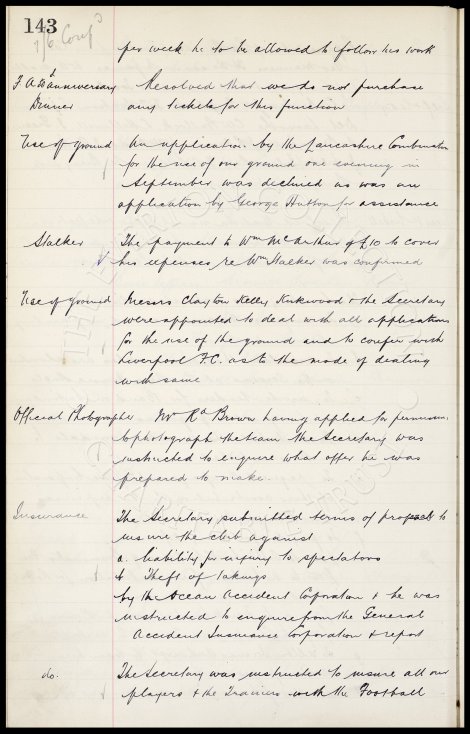 143
per week he to be allowed to follow his work
F.A. anniversary Resolved that we do not purchase
Dinner any tickets for this function
Use of ground An application by the Lancashire Combination
for the use of our ground one evening in
September was declined as was an
application by George Hutton for assistance
Stalker The payment to Wm McArthur of £10 to cover
his expenses re Wm Stalker was confirmed
Use of ground Messrs Clayton Kelly Kirkwood & the Secretary
were appointed to deal with all applications
for the use of the ground and to confer with
Liverpool F.C. as to the mode of dealing
with same
Official Photographer Mr Rd Brown having applied for permission
to photograph the team the Secretary was
instructed to enquire what offer he was
prepared to make.
Insurance The Secretary submitted terms of proposals to
insure the club against
a. liability for injury to spectators
b Theft of takings
by the Ocean Accident Corporation & he was
instructed to enquire from the General
Accident Insurance Corporation & report
do. The Secretary was instructed to insure all our
players & the Trainers with the Football